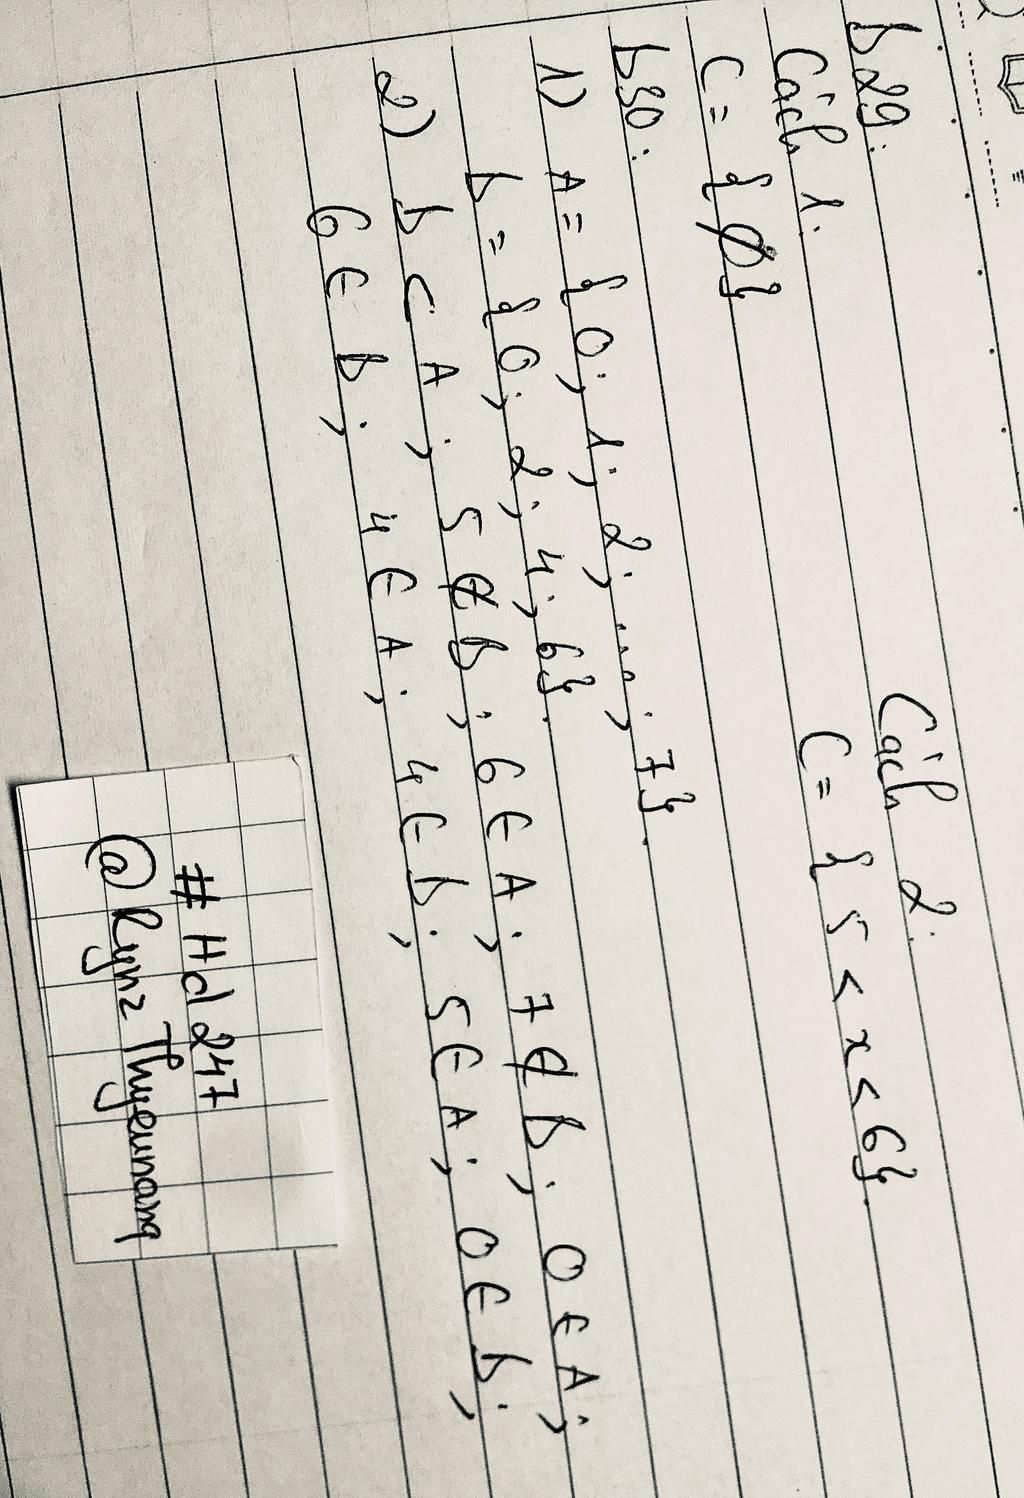 b29.
Cách 1. Cách 2.
C = {∅} C = { 5 < x < 6}.
b30.
1) A = { 0; 1; 2; ....; 7}.
b = {0; 2; 4; 6}.
2) b ⊂ A; 5 ∉ b; 6 ∈ A; 7 ∉ b; 0 ∈ A;
6 ∈ b; 4 ∈ A; 4 ∈ b; 5 ∈ A; 0 ∈ b;
# Hd 247
@Rynz Thyeunang